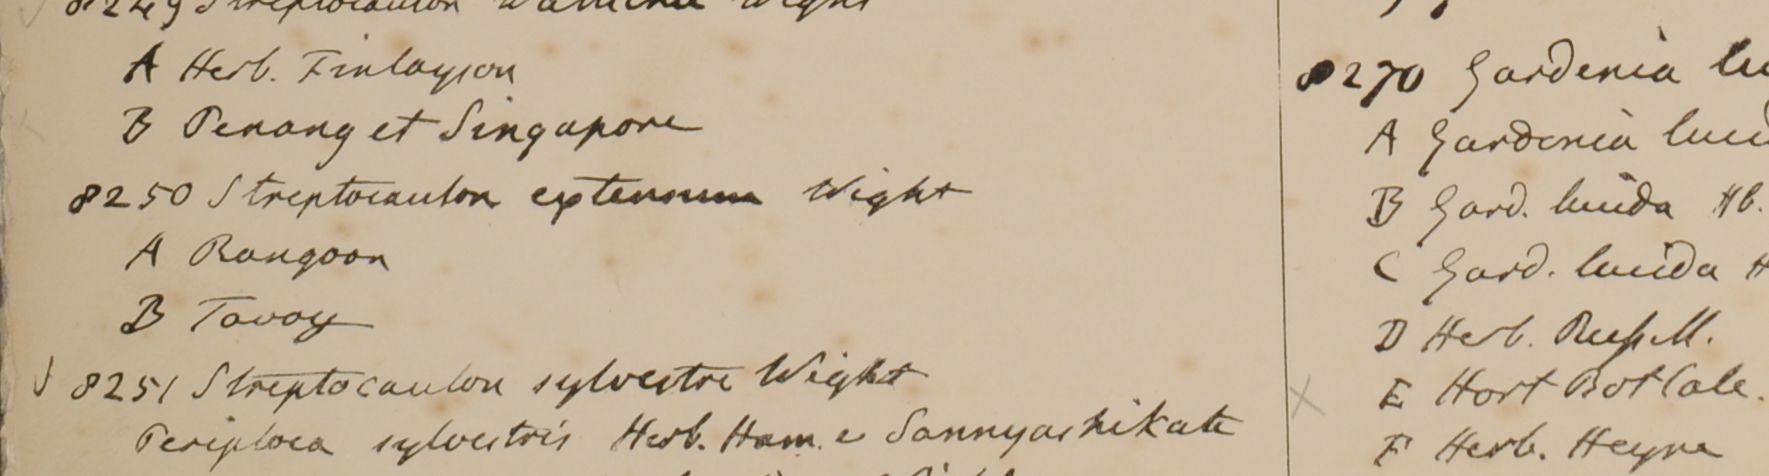 8249 Streptocaulon Wallichii Wight
A Herb. Finlayson
B Penang et Singapore
8250 Streptocaulon extensum Wight
A Rangoon
B Tavoy
8251 Streptocaulon sylvestre Wight
Periploca sylvestris Herb. Ham. e Sannyashikate
8270 Gardenia lu
A Gardenia luci
B Gard. lucida Hb.
C Gard. lucida H
D Herb. Russell.
E Hort Bot Calc.
F Herb. Heyne